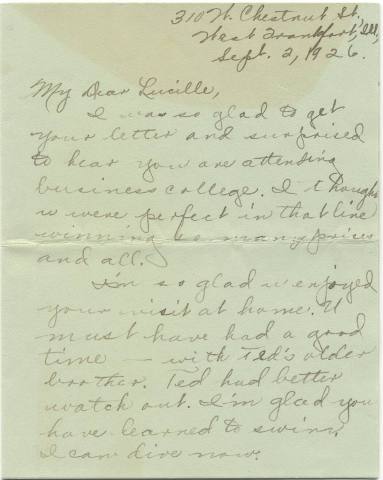 310 W. Chestnut St.,
West Frankfort, Ill.,
Sept. 2, 1926.
My Dear Lucille,
I was so glad to get
your letter and surprised
to hear you are attending
business college. I thought
u were perfect in that line
winning so many prizes
and all.
I'm so glad u enjoyed
your visit at home. U
must have had a good
time — with Ted's older
brother. Ted had better
watch out. I'm glad you
have learned to swim.
I can dive now.